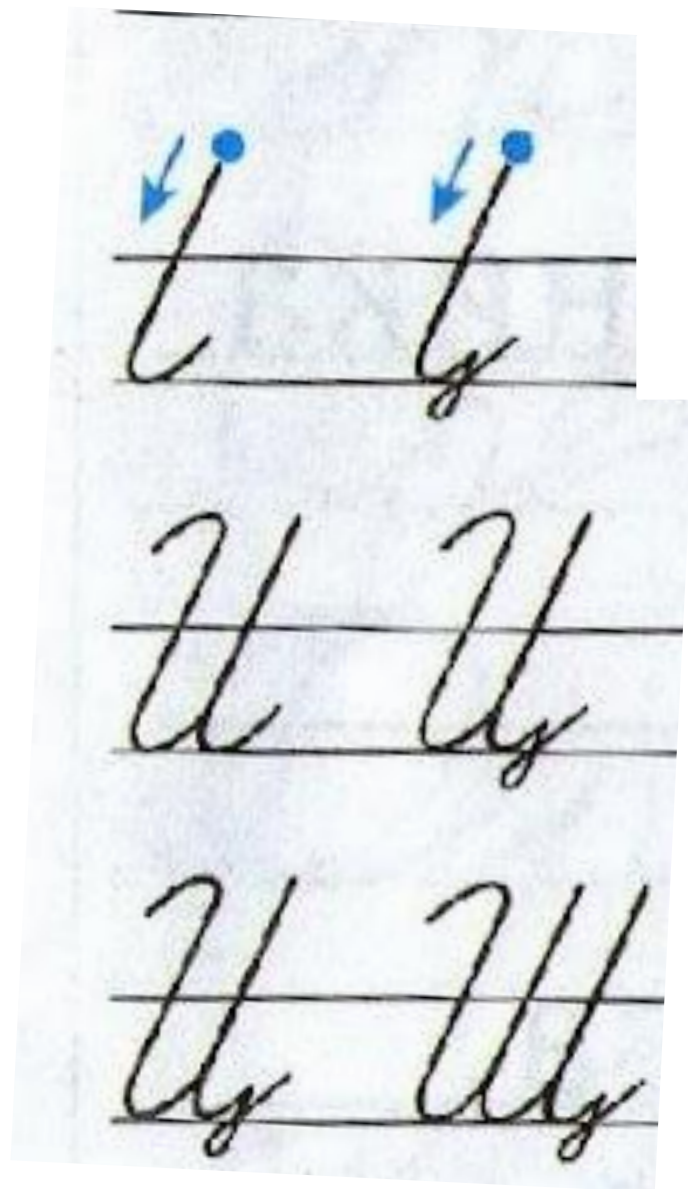 И Ц
Ц Щ